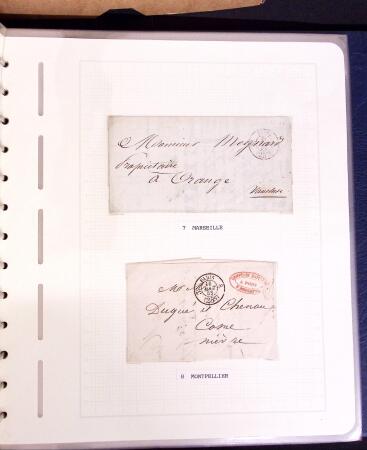 Monsieur Meynard
Propriétaire
à Orange
Vaucluse
7 MARSEILLE
Mr
Duqué et Chenou
Cosne
nièvre
8 MONTPELLIER